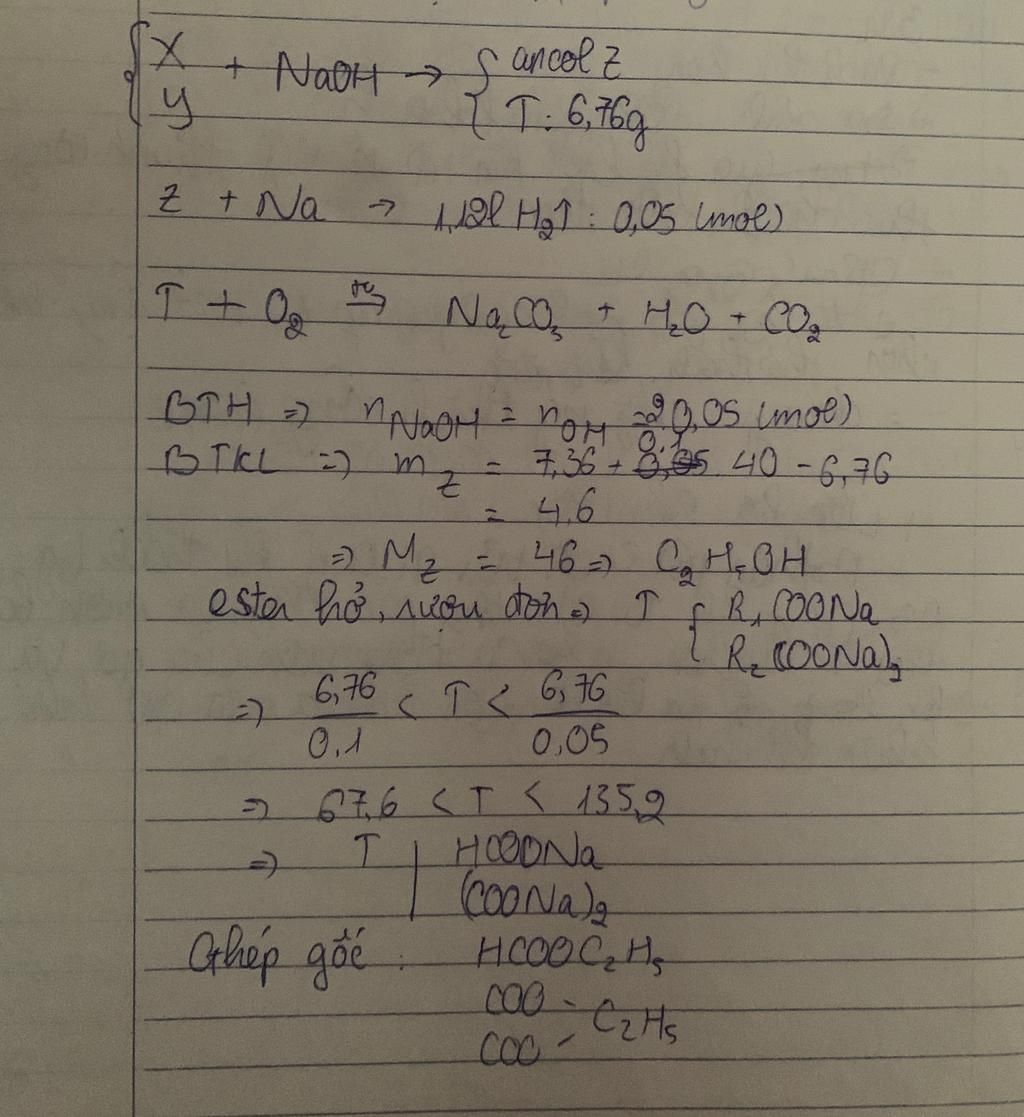 { X + NaOH → { ancol Z
Y T: 6,76g
Z + Na → 1,12l H₂↑ : 0,05 (mol)
T + O₂ → Na₂CO₃ + H₂O + CO₂
BTH ⇒ nNaOH = nOH = 2.0,05 (mol)
BTKL ⇒ mZ = 7,36 + 0,1 40 - 6,76
= 4,6
⇒ MZ = 46 ⇒ C₂H₅OH
ester hở, rượu đơn ⇒ T { R₁COONa
R₂(COONa)₂
⇒ 6,76/0,1 < T < 6,76/0,05
⇒ 67,6 < T < 135,2
⇒ T | HCOONa
(COONa)₂
Ghép gốc : HCOOC₂H₅
COO - C₂H₅
COO -